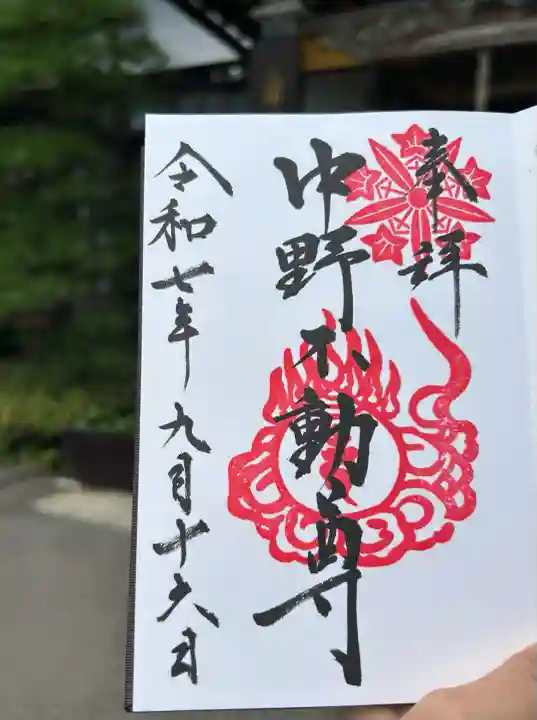 奉拝
中野不動尊
令和七年九月十六日